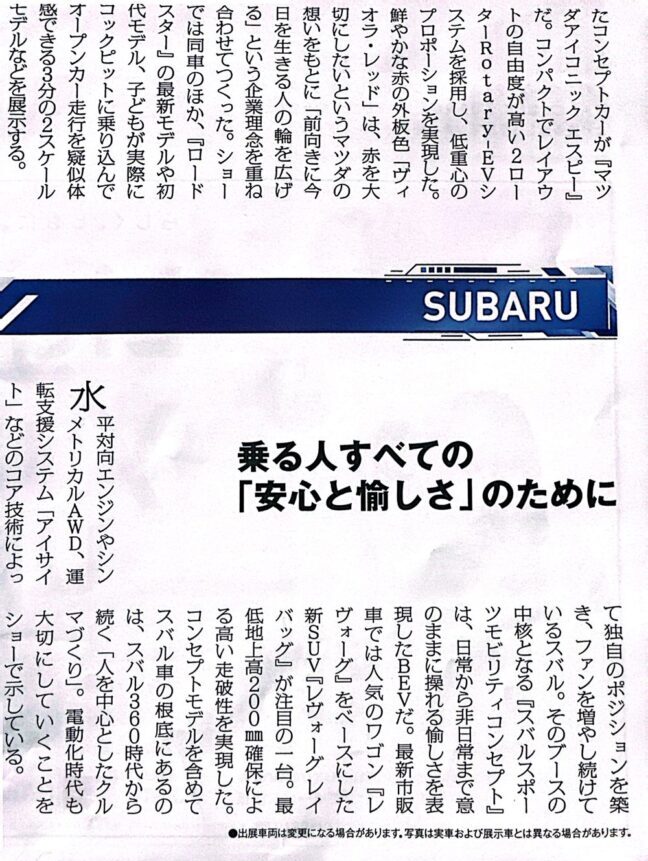 たコンセプトカーが『マツ
ダアイコニック エスピー』
だ。コンパクトでレイアウ
トの自由度が高い2ロー
ターRotary-EVシ
ステムを採用し、低重心の
プロポーションを実現した。
鮮やかな赤の外板色「ヴィ
オラ・レッド」は、赤を大
切にしたいというマツダの
想いをもとに「前向きに今
日を生きる人の輪を広げ
る」という企業理念を重ね
合わせてつくった。ショー
では同車のほか、『ロード
スター』の最新モデルや初
代モデル、子どもが実際に
コックピットに乗り込んで
オープンカー走行を疑似体
感できる3分の2スケール
モデルなどを展示する。
SUBARU
乗る人すべての
「安心と愉しさ」のために
水平対向エンジンやシン
メトリカルAWD、運
転支援システム「アイサイ
ト」などのコア技術によっ
て独自のポジションを築
き、ファンを増やし続けて
いるスバル。そのブースの
中核となる『スバルスポー
ツモビリティコンセプト』
は、日常から非日常まで意
のままに操れる愉しさを表
現したBEVだ。最新市販
車では人気のワゴン『レ
ヴォーグ』をベースにした
新SUV『レヴォーグ レイ
バック』が注目の一台。最
低地上高200mm確保によ
る高い走破性を実現した。
コンセプトモデルを含めて
スバル車の根底にあるの
は、スバル360時代から
続く「人を中心としたクル
マづくり」。電動化時代も
大切にしていくことを
ショーで示している。
●出展車両は変更になる場合があります。写真は実車および展示車とは異なる場合があります。